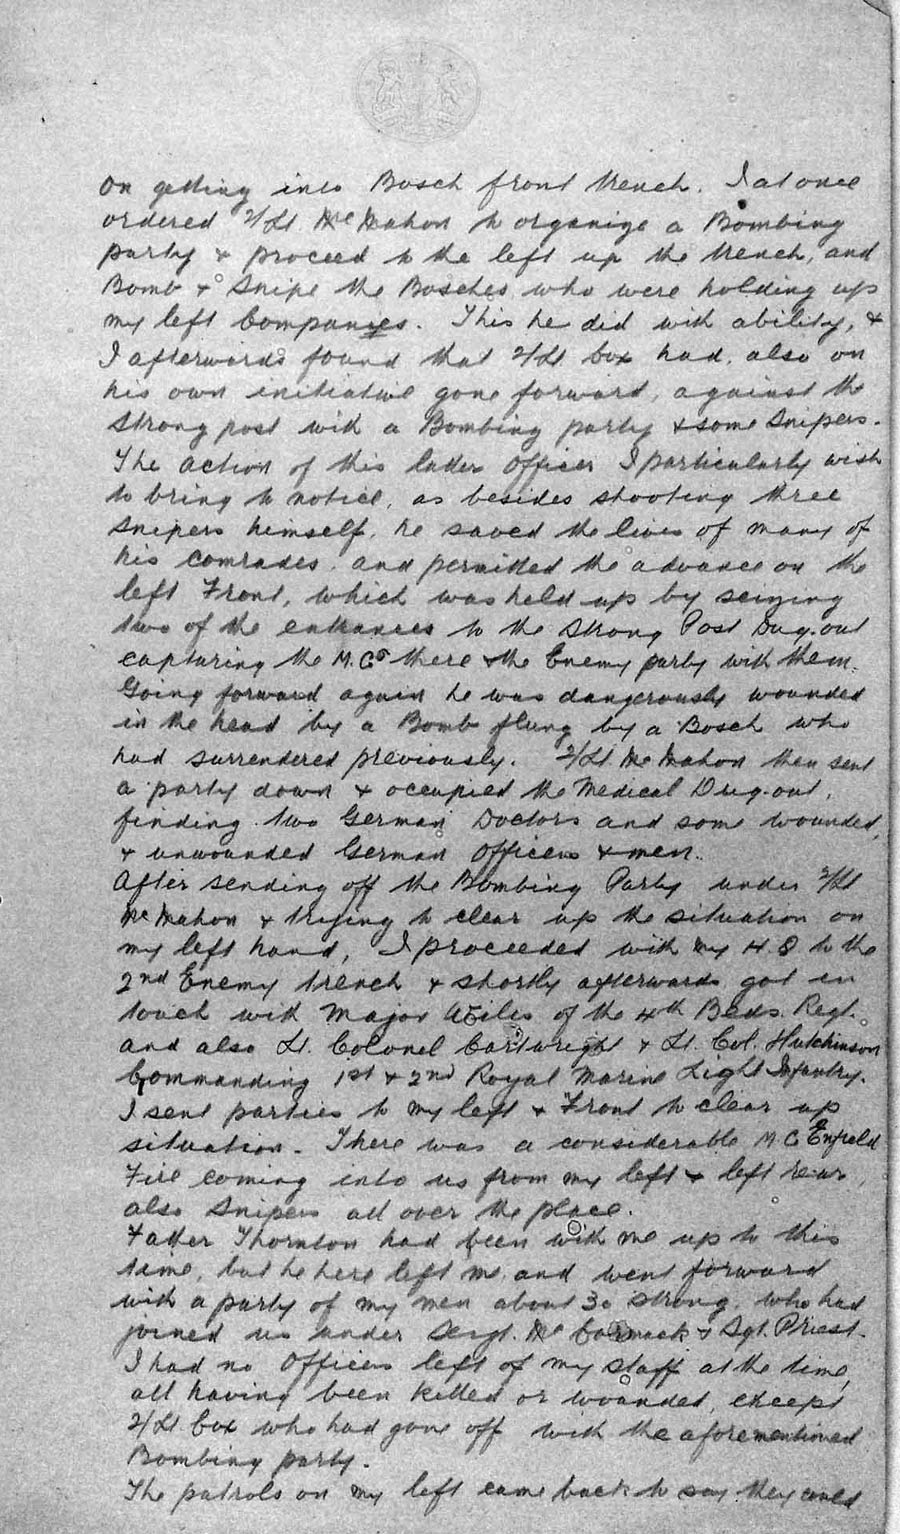 On getting into Bosch front trench. I at once
ordered 2/Lt. McMahon to organize a Bombing
party & proceed to the left up the trench, and
Bomb & Snipe the Bosches who were holding up
my left Companies. This he did with ability, &
I afterwards found that 2/Lt. Cox had, also on
his own initiative gone forward, against the
strong post with a Bombing party & some Snipers.
The action of this latter Officer I particularly wish
to bring to notice, as besides shooting three
Snipers himself, he saved the lives of many of
his comrades, and permitted the advance on the
left Front, which was held up by seizing
two of the entrances to the Strong Post Dug-out
capturing the M.Gs there & the Enemy party with them.
Going forward again he was dangerously wounded
in the head by a Bomb flung by a Bosch who
had surrendered previously. 2/Lt McMahon then sent
a party down & occupied the Medical Dug-out,
finding two German Doctors and some wounded,
& unwounded German Officers & men.
After sending off the Bombing Party under 2/Lt
McMahon & trying to clear up the situation on
my left hand, I proceeded with my H.Q to the
2nd Enemy trench & shortly afterwards got in
touch with Major of the 4th Beds. Regt.
and also Lt. Colonel Cartwright & Lt. Col. Hutchinson
Commanding 1st & 2nd Royal Marine Light Infantry.
I sent parties to my left & Front to clear up
situation. There was a considerable M G Enfield
Fire coming into us from my left & left rear,
also Snipers all over the place.
Father Thornton had been with me up to this
time, but he here left me, and went forward
with a party of my men about 30 strong, who had
joined us under Sergt. McCormack & Sgt. Priest.
I had no Officers left of my staff at the time,
all having been killed or wounded, except
2/Lt Cox who had gone off with the aforementioned
Bombing party.
The patrols on my left came back to say they could